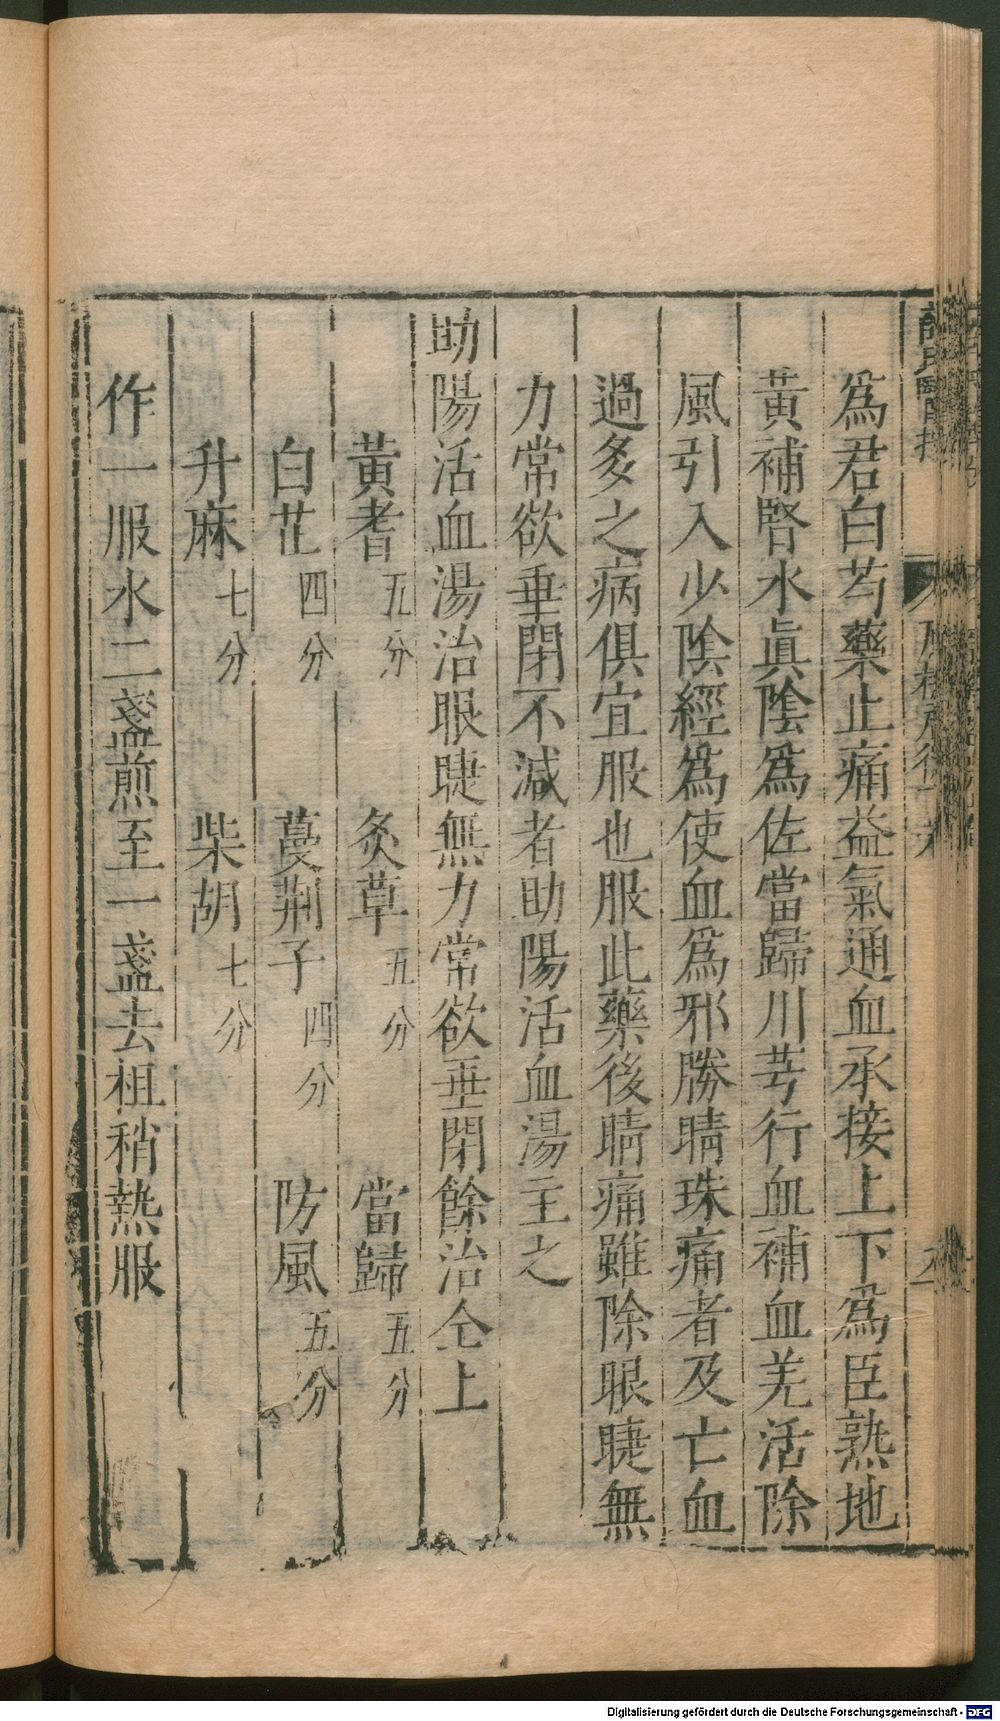 薛氏醫
爲君白芍藥止痛益氣通血承接上下爲臣熟地
黃補腎水眞陰爲佐當歸川芎行血補血羌活除
風引入少陰經爲使血爲邪勝睛珠痛者及亡血
過多之病俱宜服也服此藥後睛痛雖除眼睫無
力常欲垂閉不減者助陽活血湯主之
助陽活血湯治眼睫無力常欲垂閉餘治仝上
黃耆五分 炙草五分 當歸五分
白芷四分 蔓荆子四分 防風五分
升麻七分 柴胡七分
作一服水二盞煎至一盞去柤稍熱服
Digitalisierung gefördert durch die Deutsche Forschungsgemeinschaft - DFG